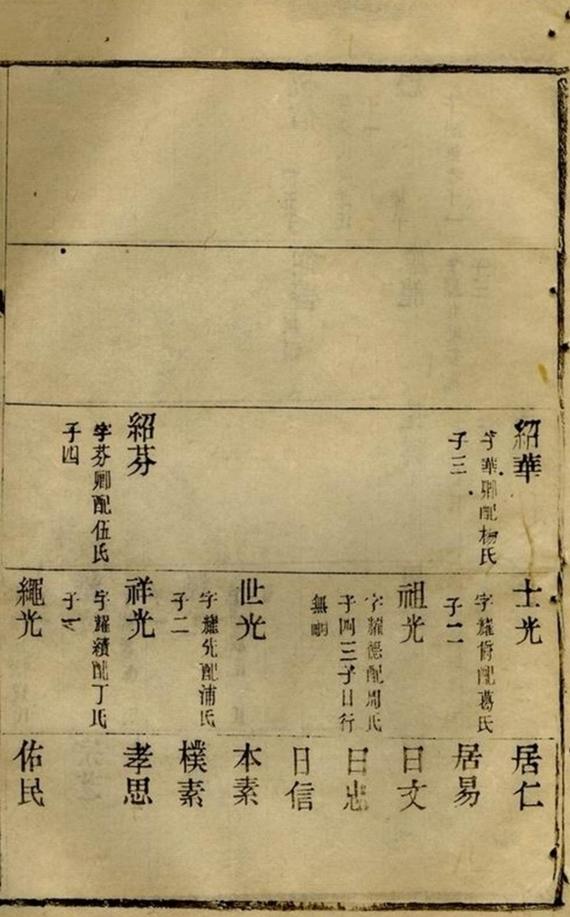 紹華
字華卿配楊氏
子三
紹芬
字芬卿配伍氏
子四
士光
字耀哲配葛氏
子二
祖光
字耀德配周氏
子四三子日行
無嗣
世光
字耀先配浦氏
子二
祥光
字耀績配丁氏
子
繩光
居仁
居易
日文
日忠
日信
本素
樸素
孝思
佑民